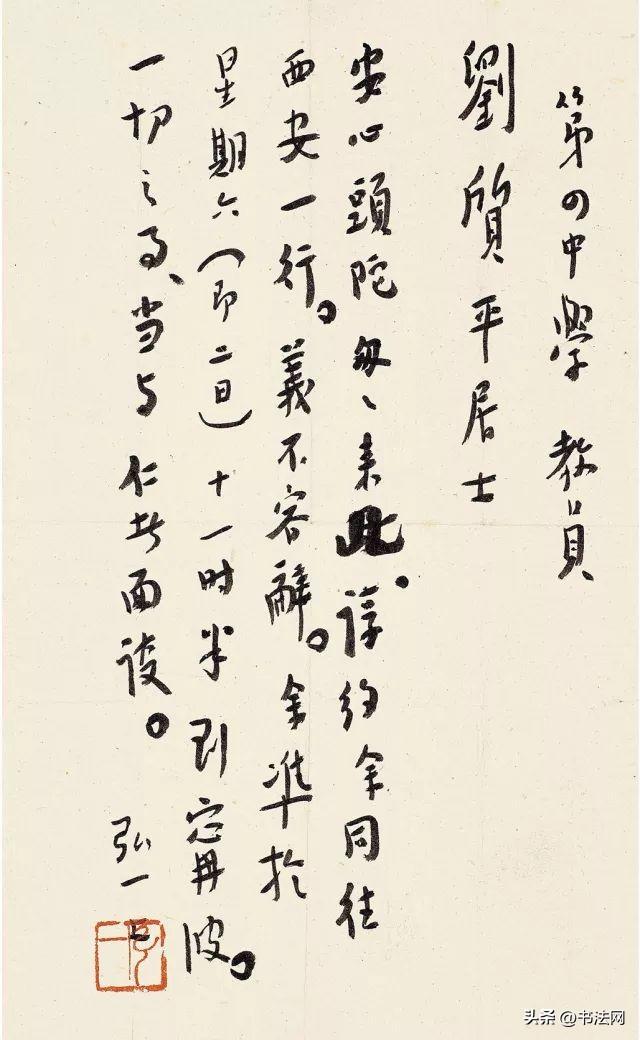 第四中學 教員
劉質平居士
安心頭陀匆々来此。諄约余同往
西安一行。義不容辭。余準於
星期六（即二日）十一时半到寗再波。
一切之事、当与 仁者面谈。
弘一
头条 @书法网